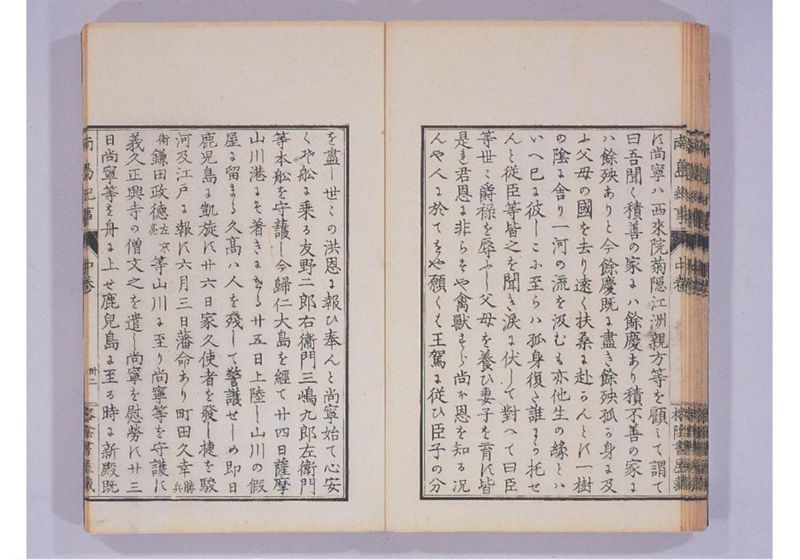 南島紀事 中卷
に尚寧ハ西來院菊隠江洲親方等を顧ミて謂て
曰吾聞く積善の家にハ餘慶あり積不善の家に
ハ餘殃ありと今餘慶既に盡き餘殃孤か身に及
ふ父母の國を去り遠く扶桑に赴らんとに一樹
の陰に舎り一河の流を汲むも亦他生の縁とハ
いへ已に彼しこに至らハ孤身復さ誰にか托せ
んと從臣等皆之を聞き涙に伏して對へて曰臣
等世〻爵禄を辱ふし父母を養ひ妻子を育に皆
是れ君恩に非らさや禽獸すら尚ホ恩を知る况
んや人に於てをや願くハ王駕に從ひ臣子の分
を盡し世〻の洪恩に報ひ奉んと尚寧始て心安
くや船に乗る友野二郎右衞門三嶋九郎左衞門
等本船を守護し今歸仁大島を經て廿四日薩摩
山川港にそ着きにける廿五日上陸し山川の假
屋に留まる久髙ハ人を殘して警護せしめ即日
鹿児島に凱旋に廿六日家久使者を發し捷を駿
河及江戸に報に六月三日藩命あり町田久幸勝兵
衛鎌田政德左京亮等山川に至り尚寧等を守護に
義久正興寺の僧文之を遣し尚寧を慰勞に廿三
日尚寧等を舟に上せ鹿児島に至る時に新殿既
南島紀事 中卷 卅二